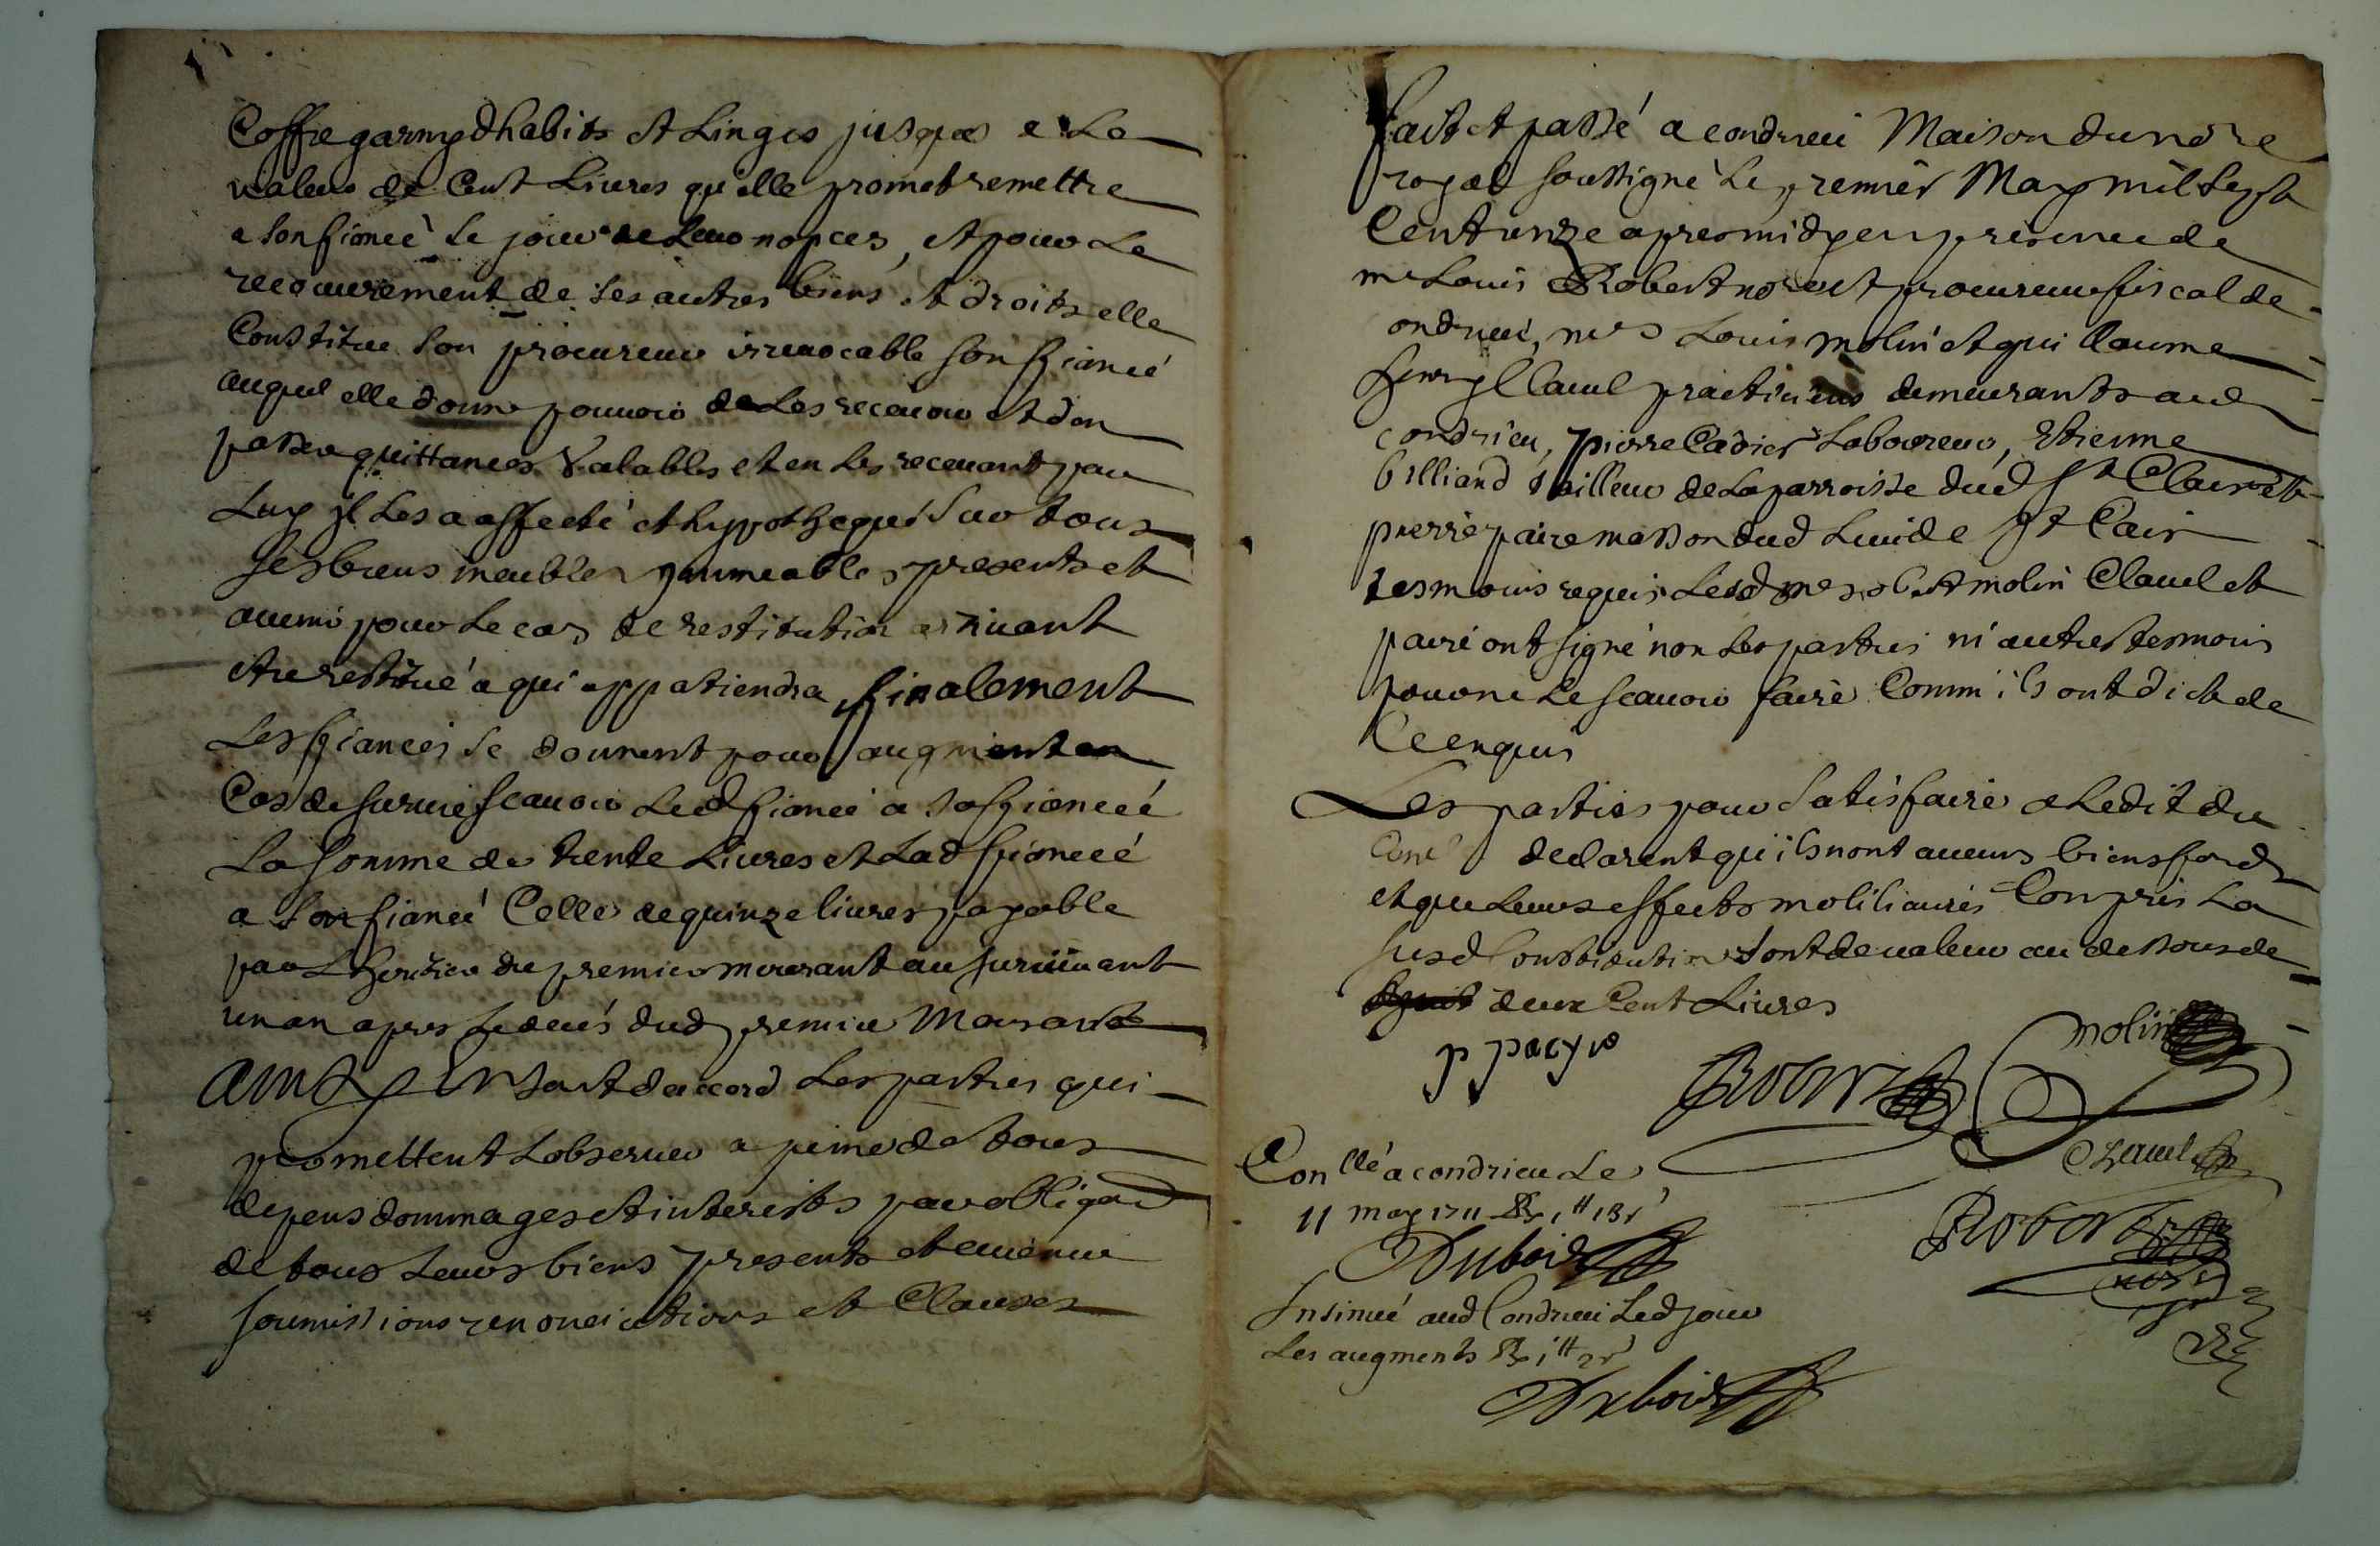 Coffre garny dhabits et Linges jusques a La
valeur de Cent Livres qu'elle promet remettre
a son fiancé le jour de Leur nopces, et pour Le
recouvrement de ses autres biens et droits elle
Constitue son procureur irrevocable son fiancé
auquel elle donne pouvoir de Les recevoir et d'en
passer quittances valables et en les recevant par
Luy jl Les a affecté et hypothequé sur tous
ses biens meubles jmmeubles presents et
avenir pour Le cas de restitution arrivant
etre restitué a qui appatiendra finalement
Les fiancés se donnent pour augment en
Cas de survie scavoir Led fiancé a sa fiancéé
La somme de trente Livres et Lad fianceé
a son fiancé Celle de quinze livres payable
par L'heritier du premier mourant au survivant
un an apres Le decés dud premier Mourant
Ainsy En sont d'accord Les parties qui
promettent L'observer a peine de tous
depens dommages et interests par obligaon
de tous Leurs biens presents et avenir
soumissions renonciations et Clauses
fait et passé a condrieu Maison du no.re
royal soussigné Le premier May mil sept
Cent unze apres midy en presence de
me Louis Robert no.re et procureur fiscal de
ondrieu, mes Louis molin et guillaume
henry Clauel practiciens demeurants aud
condrieu, pierre Cadier Laboureur, Etienne
billiand tailleur de La parroisse dud St Clair et
pierre paire masson dud Lieu de St Clair
tesmoins requis Lesd mes robert molin Clauel et
paire ont signé non Les parties ni autres tesmoins
pour ne Le scavoir faire Comm'ils ont dict de
Ce enquis
Les parties pour satisfaire a Ledit du
Conl declarent qu'ils n'ont aucuns biens fonds
et que Leurs effects mobiliaires Compris La
susd Constitution sont de valeur au dessous de
deux Cent Livres
p payre
Robert
molin
Clauel
Conllé a condrieu Le
11 may 1711 R
Dubois
Robert
Insinué aud Condrieu Led jour
Les augments R
Dubois